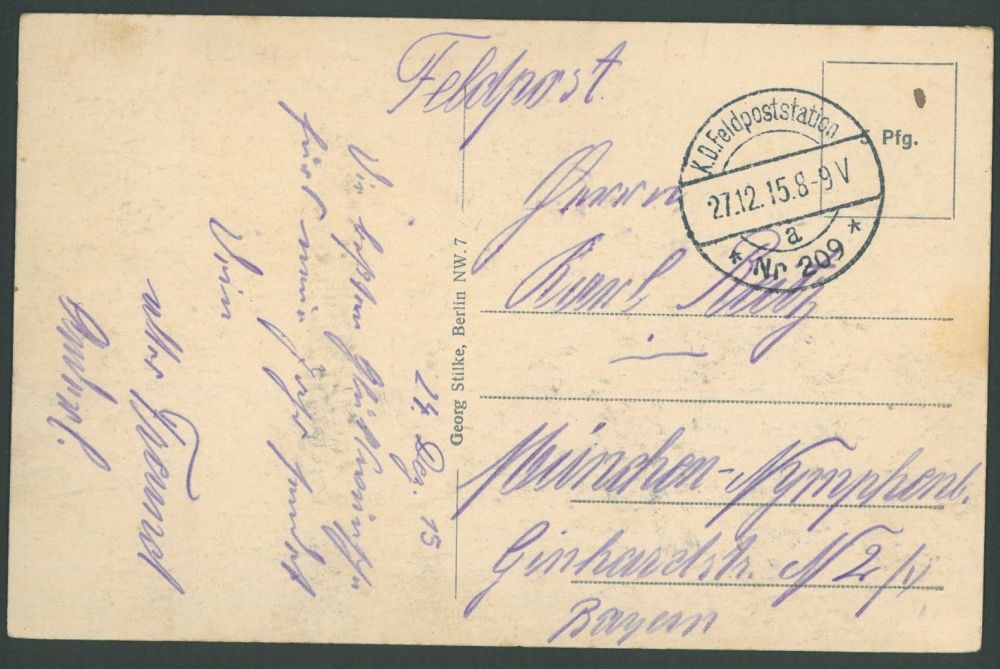 Feldpost.
K.D. Feldpoststation
27.12.15. 8-9 V
a
* Nr 209 *
5 Pfg.
Herrn
Karl
München-Nymphenb.
N 2
Bayern
Georg Stilke, Berlin NW. 7
24. Dez. 15
Die besten Glückwünsche
fürs neue Jahr sendet
Dein
alter Freund